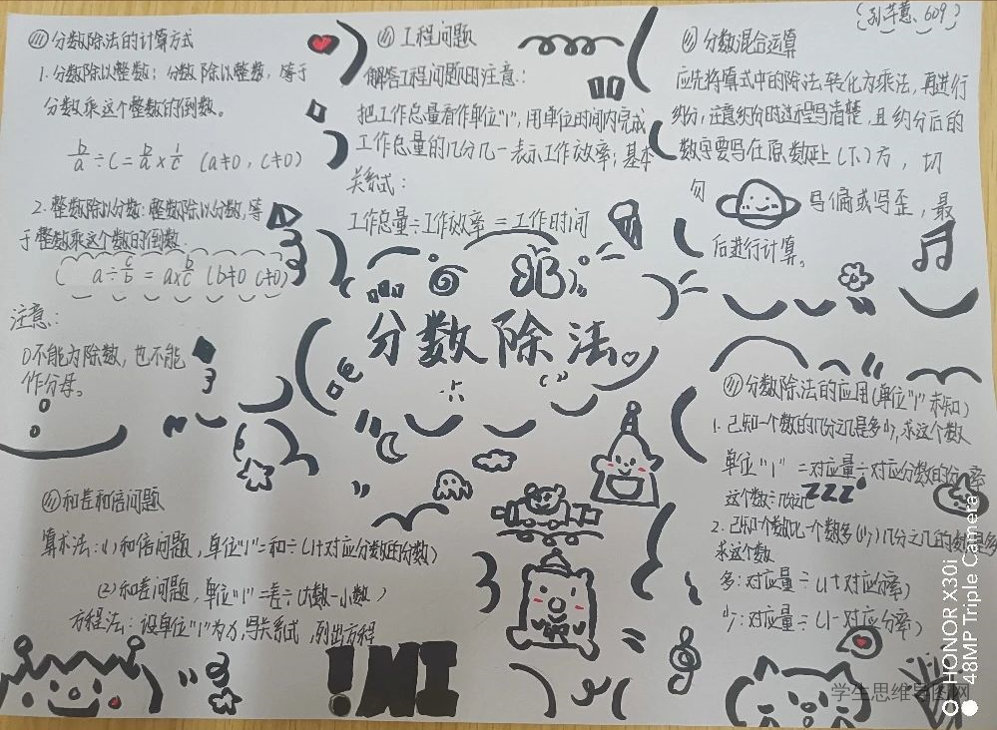 孙芊慧、609
分数除法的计算方式
1. 分数除以整数：分数除以整数，等于
分数乘这个整数的倒数。
b/a ÷ c = b/a × 1/c (a≠0, c≠0)
2. 整数除以分数：整数除以分数，等
于整数乘这个数的倒数.
( a ÷ c/b = a× b/c (b≠0 c≠0)
注意：
0不能为除数，也不能
作分母。
工程问题
解答工程问题时的注意：
把工作总量看作单位"1"，用单位时间内完成
工作总量的几分几一表示工作效率；基本
关系式：
工作总量÷工作效率 = 工作时间
分数混合运算
应先将算式中的除法转化为乘法，再进行
约分，注意约分时过程写清楚，且约分后的
数字要写在原数正上(下)方，切
勿 写偏或写歪，最
后进行计算。
分数除法
分数除法的应用(单位"1"未知)
1. 已知一个数的几分之几是多少，求这个数
单位"1" =对应量÷对应分数的分率
这个数÷几分之几
ZZZ
2. 已知个数比一个数多(少)几分之几的数是多
求这个数
多：对应量÷(1+对应分率)
少：对应量÷(1-对应分率)
和差和倍问题
算术法：(1) 和倍问题，单位"1"=和÷(1+对应分数的分数)
(2) 和差问题，单位"1"=差÷(大数-小数)
方程法：设单位"1"为x，写关系式，列出方程
HONOR X30i
48MP Triple Camera
学生思维导图网